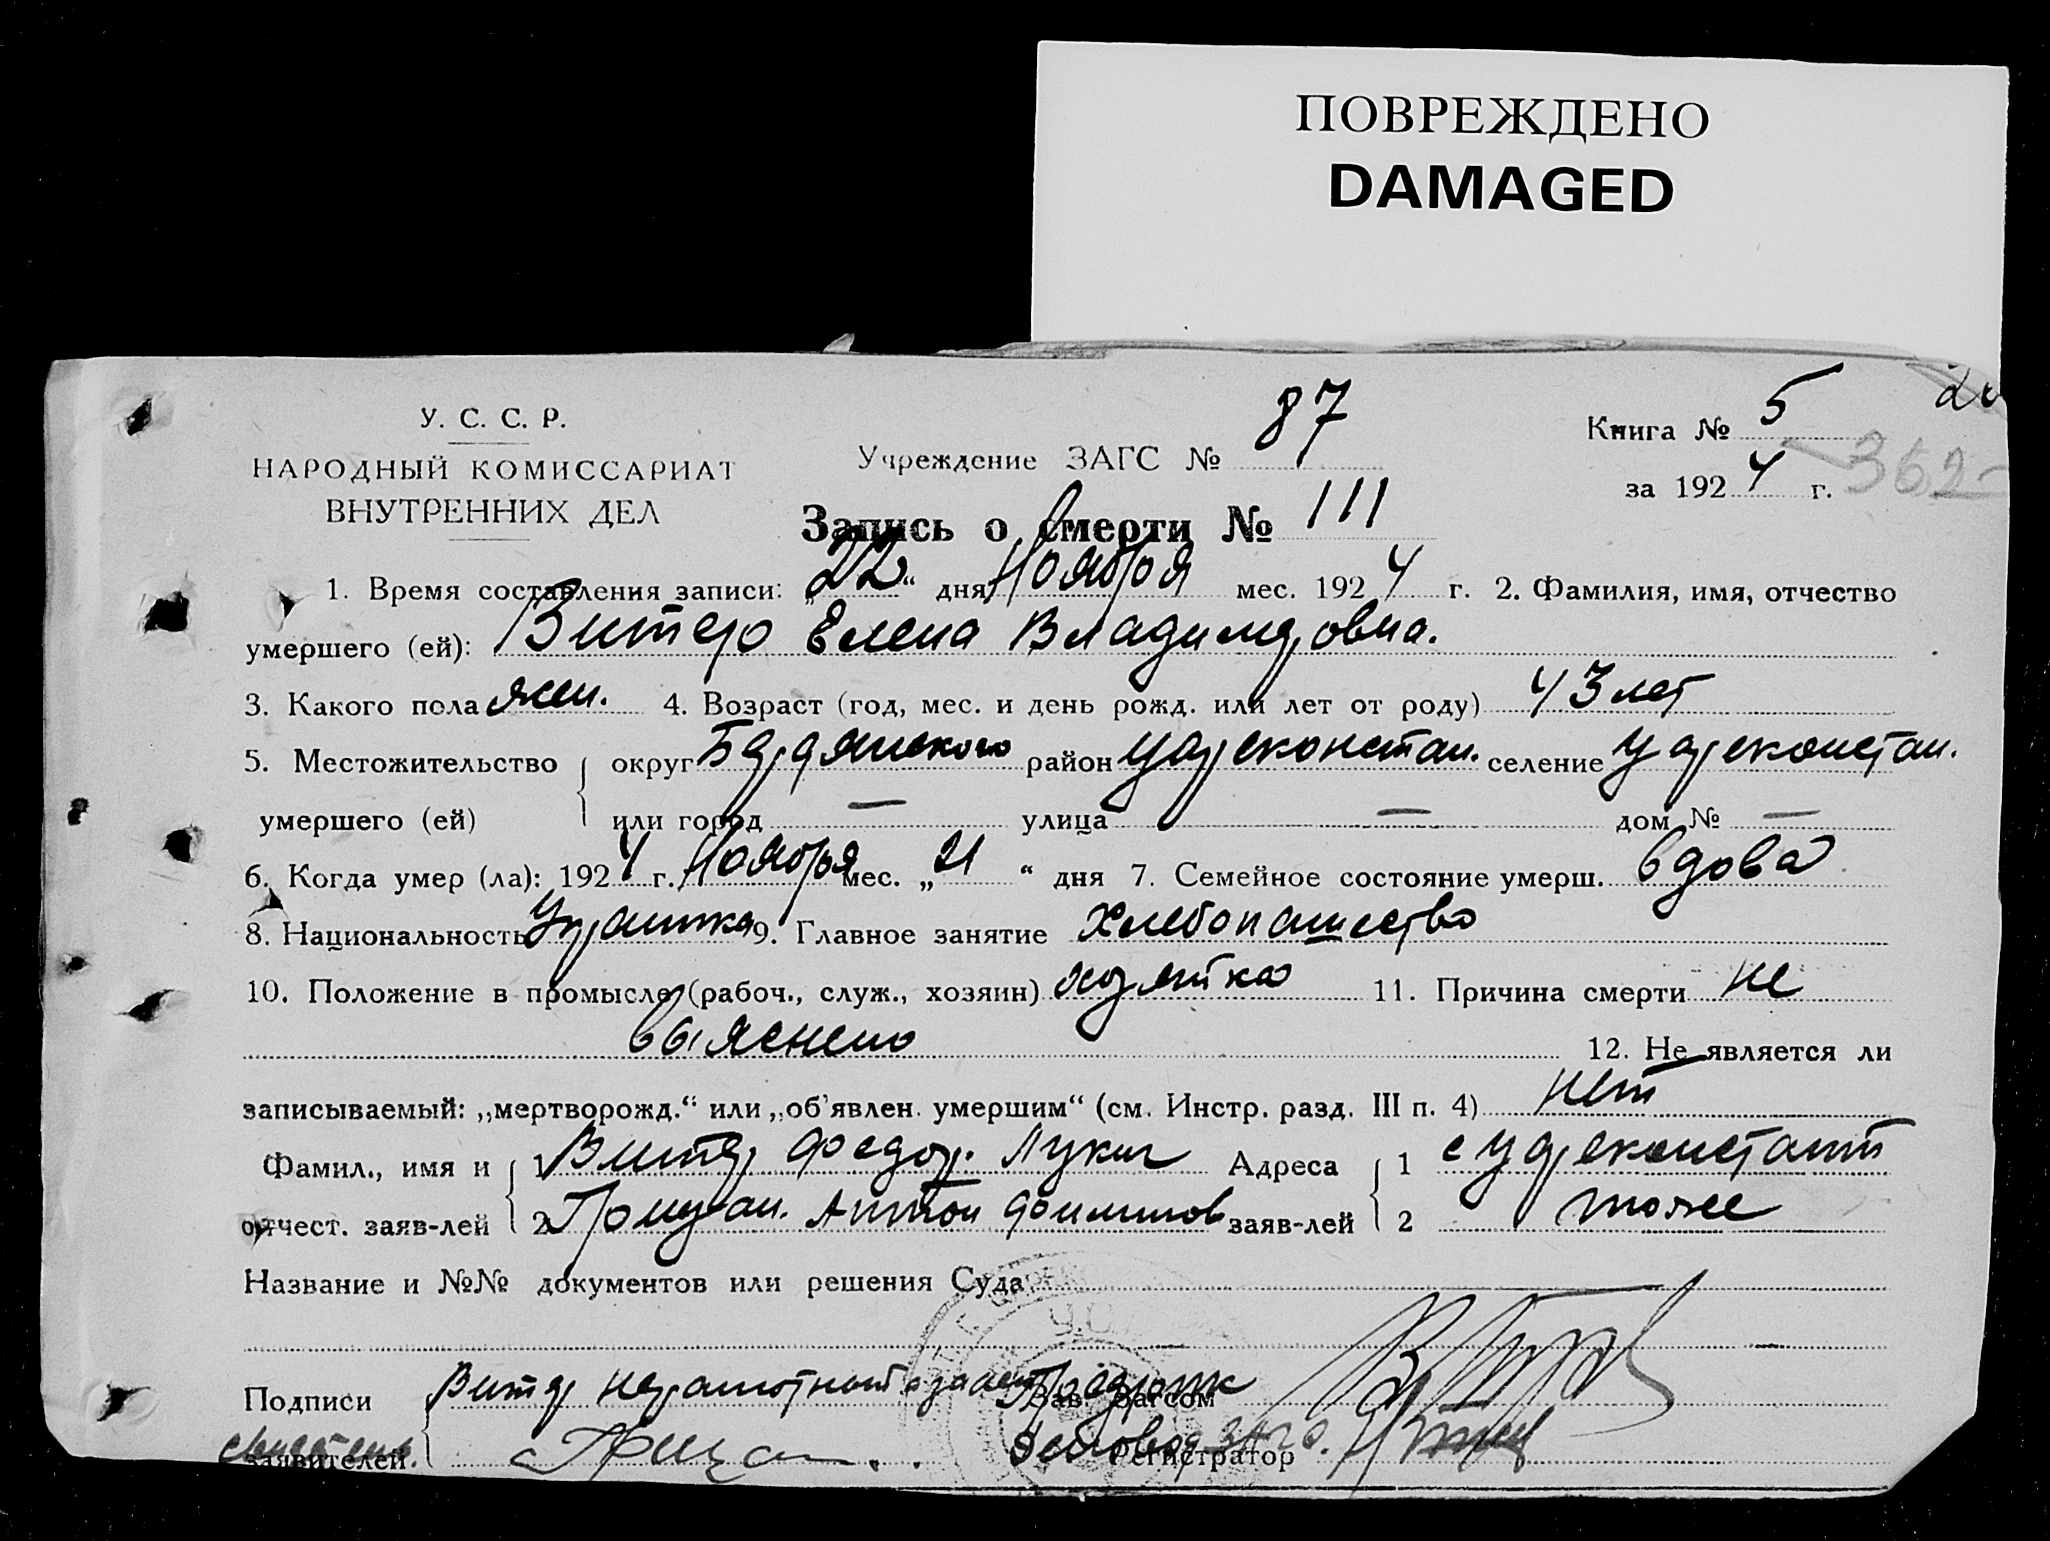 ПОВРЕЖДЕНО
DAMAGED
У. С. С. Р.
НАРОДНЫЙ КОМИССАРИАТ
ВНУТРЕННИХ ДЕЛ
Учреждение ЗАГС № 87
Книга № 5
за 1924 г. 362
Запись о смерти № 111
1. Время составления записи: „22“ дня Ноября мес. 1924 г. 2. Фамилия, имя, отчество
умершего (ей): Витер Елена Владимировна.
3. Какого пола жен. 4. Возраст (год, мес. и день рожд. или лет от роду) 43 лет
5. Местожительство округ Бердянского район Цареконстан. селение Цареконстан.
умершего (ей) или город — улица — дом № —
6. Когда умер (ла): 1924 г. Ноября мес. „21“ дня 7. Семейное состояние умерш. вдова
8. Национальность 9. Главное занятие Хлебопашество
10. Положение в промысле (рабоч., служ., хозяин) хозяйка 11. Причина смерти не
выяснено 12. Не является ли
записываемый: „мертворожд.“ или „об'явлен. умершим“ (см. Инстр. разд. III п. 4) нет
Фамил., имя и 1 Витер Федор. Лукич Адреса 1 с Цареконстант
отчест. заяв-лей 2 Антон заяв-лей 2 тоже
Название и №№ документов или решения Суда
Подписи Витер неграмотный Зав. Загсом
заявителей Регистратор